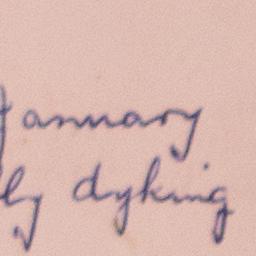 January
ly dyking